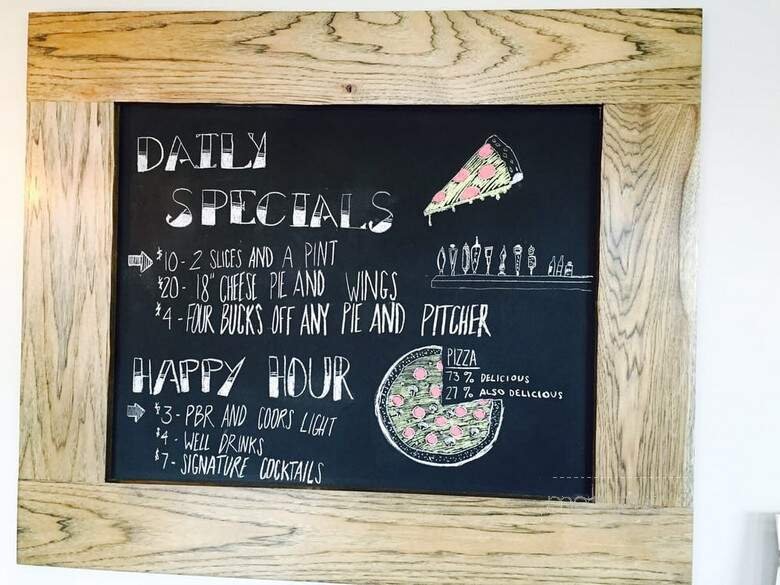 DAILY
SPECIALS
$10 - 2 SLICES AND A PINT
$20 - 18" CHEESE PIE AND WINGS
$4 - FOUR BUCKS OFF ANY PIE AND PITCHER
HAPPY HOUR
$3 - PBR AND COORS LIGHT
$4 - WELL DRINKS
$7 - SIGNATURE COCKTAILS
PIZZA
73 % DELICIOUS
27 % ALSO DELICIOUS